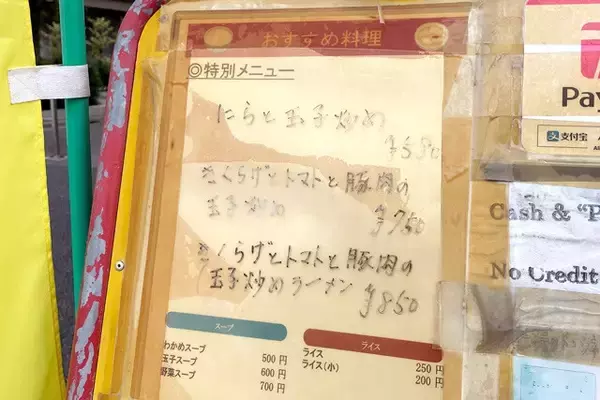 おすすめ料理
◎特別メニュー
にらと玉子炒め
¥580
きくらげとトマトと豚肉の
玉子炒め ¥750
きくらげとトマトと豚肉の
玉子炒めラーメン ¥850
スープ
わかめスープ 500円
玉子スープ 600円
野菜スープ 700円
ライス
ライス 250円
ライス(小) 200円
Pay
支付宝
Cash & "P
No Credit